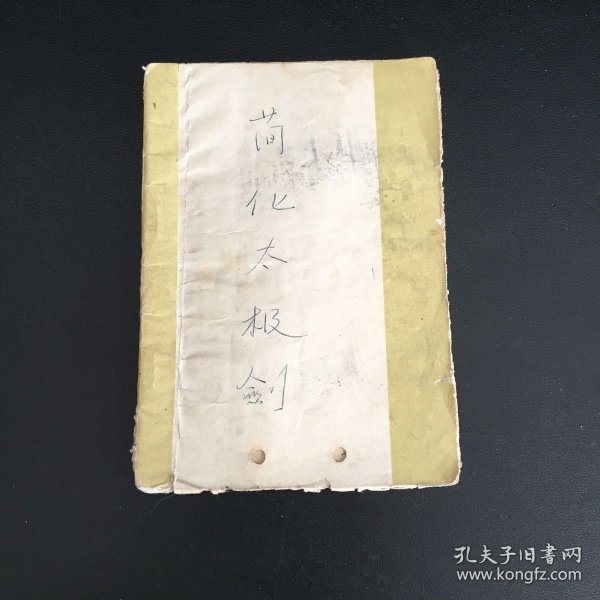 简化太极剑
孔夫子旧書网
www.kongfz.com